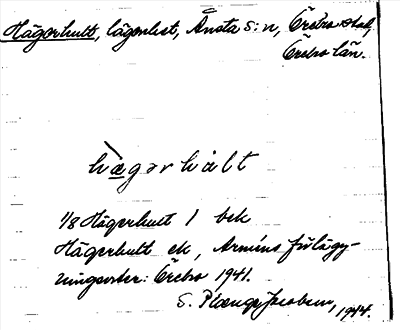 Hägerhult, lägenhet, Ånsta s:n, Örebro stad,
Örebro län.
hægərhält
1/8 Hägerhult 1 bek
Hägerhult ek, Arméns förlägg-
ningsorter: Örebro 1941.
S. Plænge Jacobson, 1944.